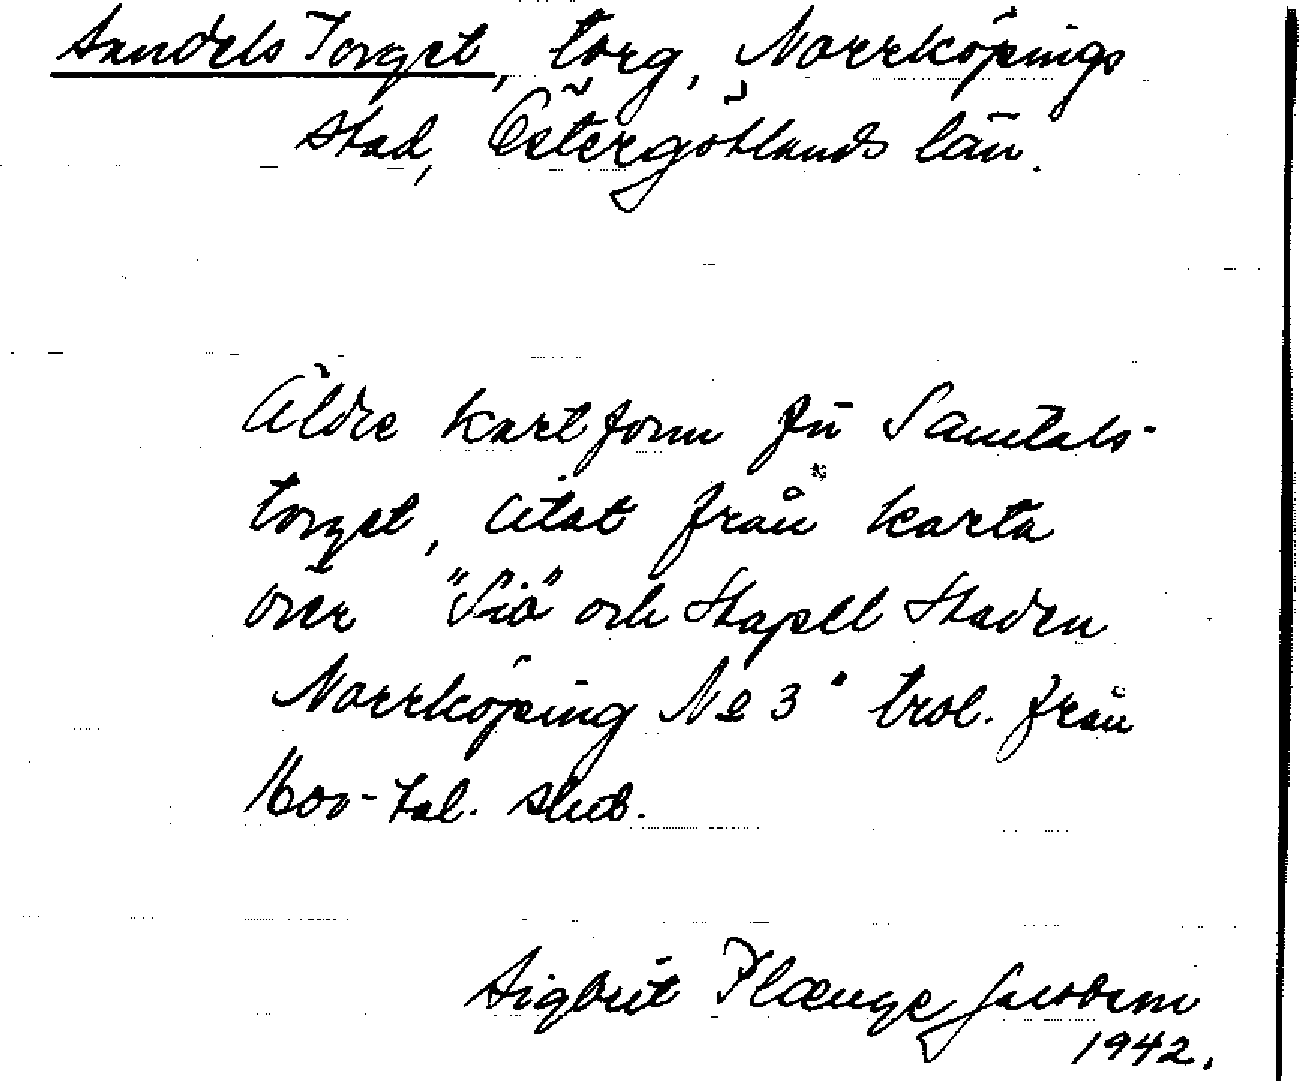 Sandels Torget, torg, Norrköpings
stad, Östergötlands län.
Äldre kartform för Samtals-
torget, citat från karta
över "Siö" och Stapell Staden
Norrköping No 3" trol. från
1600-tal. slut.
Sigbrit Plænge Jacobson
1942.